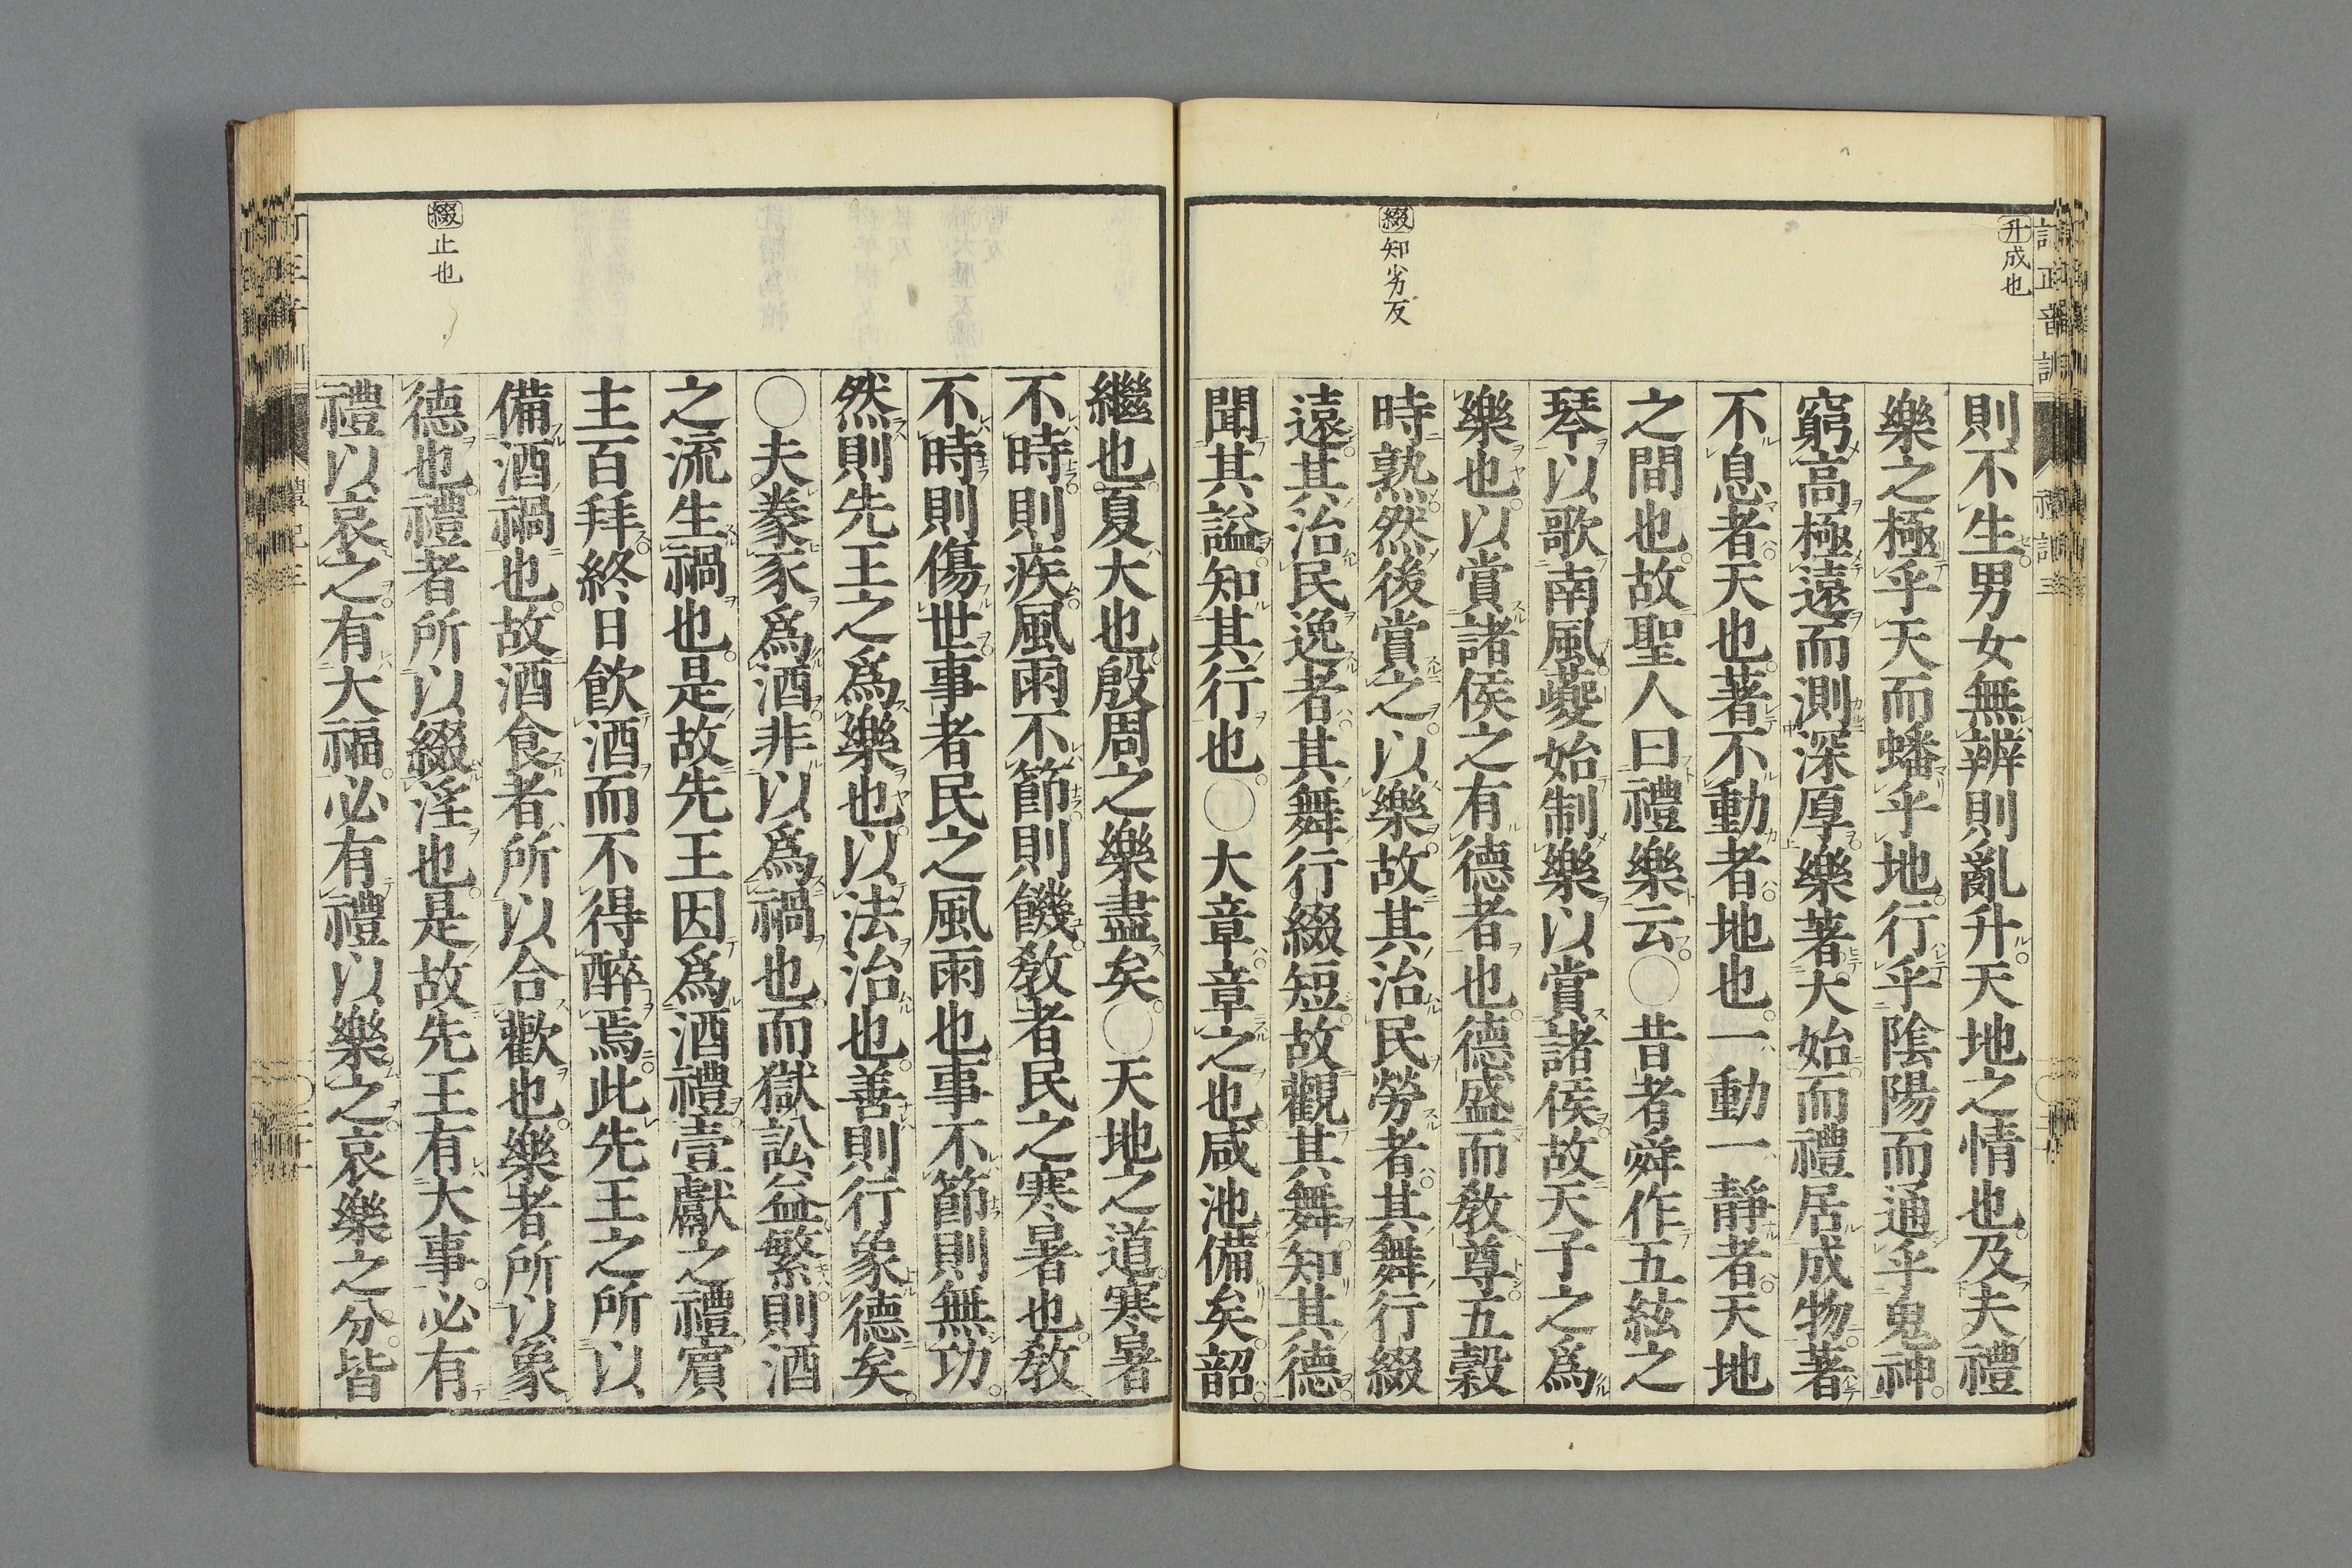 升成也
綴知劣反
則不生男女無辨則亂升天地之情也及夫禮
樂之極乎天而蟠乎地行乎陰陽而通乎鬼神
窮高極遠而測深厚樂著大始而禮居成物著
不息者天也著不動者地也一動一靜者天地
之間也故聖人曰禮樂云○昔者舜作五絃之
琴以歌南風夔始制樂以賞諸侯故天子之爲
樂也以賞諸侯之有德者也德盛而敎尊五穀
時熟然後賞之以樂故其治民勞者其舞行綴
遠其治民逸者其舞行綴短故觀其舞知其德
聞其謚知其行也○大章章之也咸池備矣韶
綴止也
繼也夏大也殷周之樂盡矣○天地之道寒暑
不時則疾風雨不節則饑敎者民之寒暑也敎
不時則傷世事者民之風雨也事不節則無功
然則先王之爲樂也以法治也善則行象德矣
○夫豢豕爲酒非以爲禍也而獄訟益繁則酒
之流生禍也是故先王因爲酒禮壹獻之禮賓
主百拜終日飮酒而不得醉焉此先王之所以
備酒禍也故酒食者所以合歡也樂者所以象
德也禮者所以綴淫也是故先王有大事必有
禮以哀之有大福必有禮以樂之哀樂之分皆